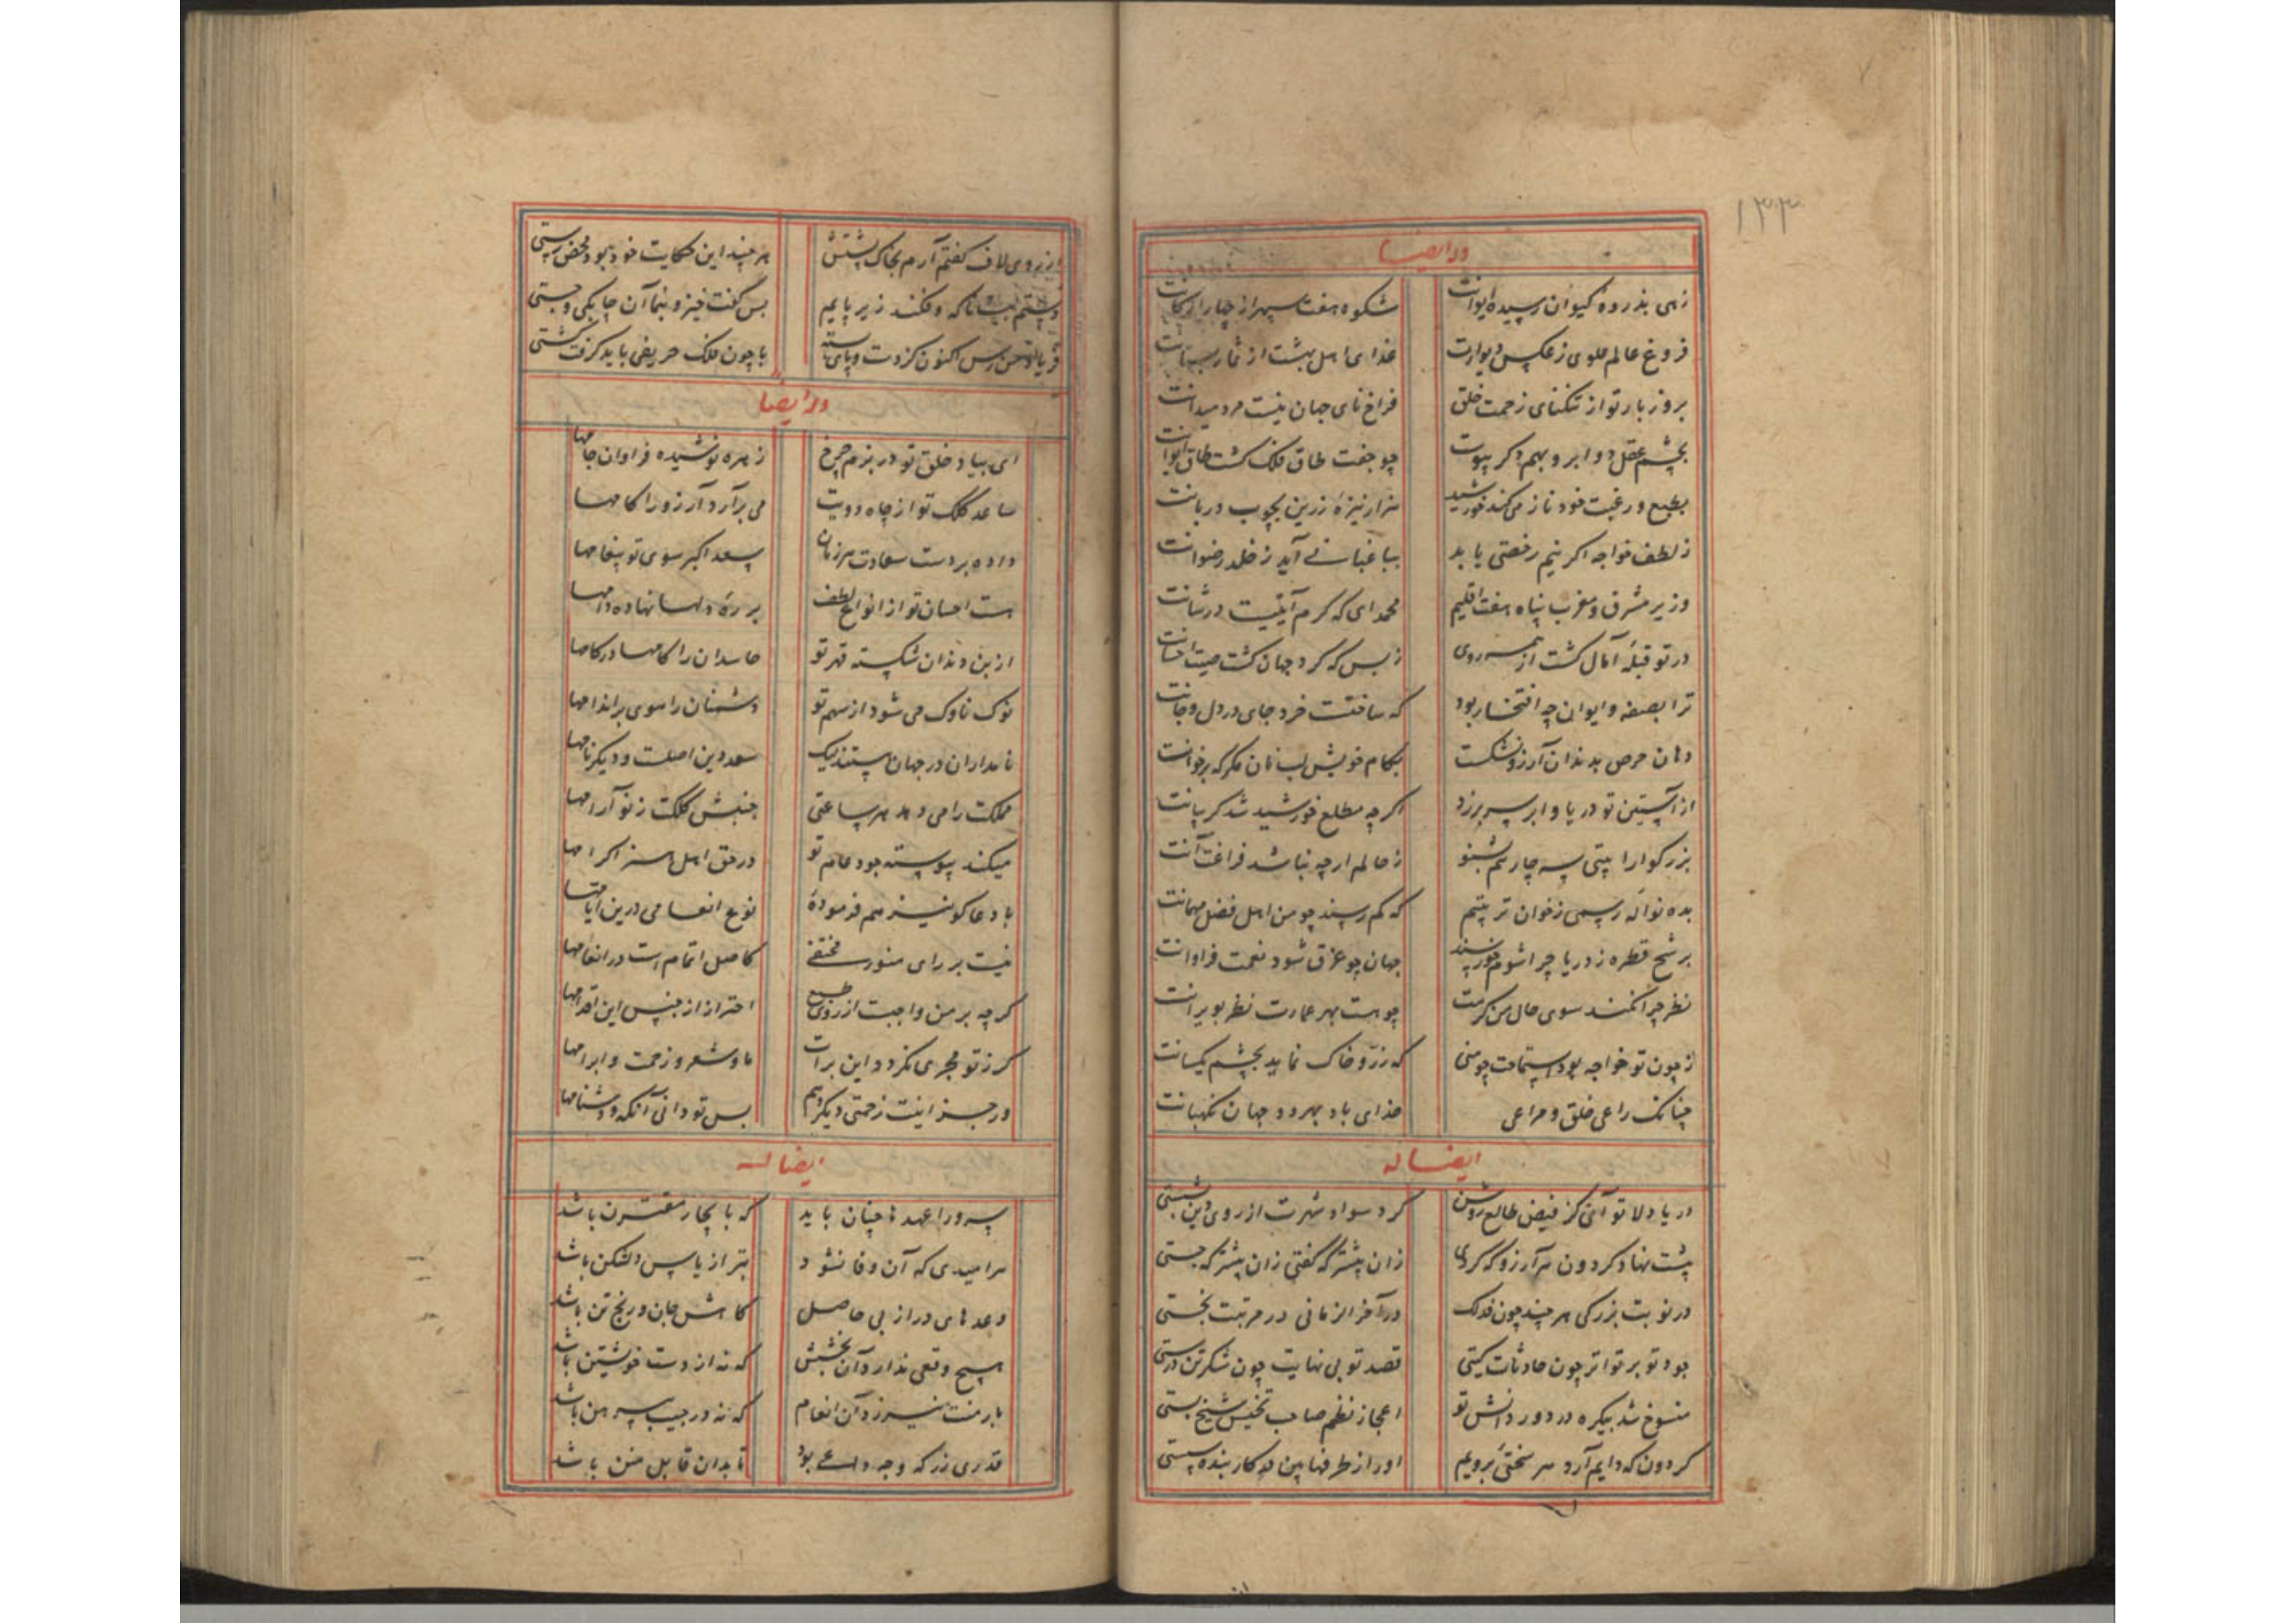 ۱۳۳
وله ایضا
زهی بذروهٔ کیوان رسیده ایوانت شکوه هفت سپهر از چهار ارکانت
فروغ عالم علوی ز عکس دیوارت غذای اهل بهشت از ثمار بستانت
بروز بار تو از تنکنای زحمت خلق فراخ نای جهان نیست مرد میدانت
بچشم عقل دو ابرو بهم دکر پیوست چو جفت طاق فلک کشت طاق ایوانت
بطبع و رغبت خود ناز می‌کند خورشید هزار نیزهٔ زرین بچوب دربانت
ز لطف خواجه اکر نیم رخصتی یابد بباغبانی آید ز خلد رضوانت
وزیر مشرق و مغرب پناه هفت اقلیم محمد ای که کرم آیتیست در شانت
در تو قبلهٔ آمال کشت از همه روی ز بس که کرد جهان کشت صیت احسانت
ترا بصفه و ایوان چه افتخار بود که ساختست خرد جای در دل و جانت
دهان حرص بدندان آرزو نشکست بکام خویش لب نان مکر که بر خوانت
از آستین تو دریا و ابر سر برزد اکر چه مطلع خورشید شد کریبانت
بزرکوارا بیتی سه چارهم بشنو ز حالم ارچه نباشد فراغت آنت
بده نوالهٔ رسمی ز خوان تربیتم که کم رسند چو من اهل فضل مهمانت
برشح قطره ز دریا چرا شوم خورسند جهان چو غرق شود نعمت فراوانت
نظر چرا نکنند سوی حال من کرمت چو هست بهر عمارت نظر بویرانت
ز چون تو خواجه بود استمالت چو منی که زر و خاک نماید بچشم یکسانت
چنانک راعی خلق و مراعی خدای باد بهر دو جهان نکهبانت
ایضا له
دریا دلا تو آنی کز فیض طالع روشن کرد سواد شهرت از روی دین بشستی
پشت نهاد کردون هر آرزو که کردی زان پیشتر که کفتی زان پیشتر که جستی
در نوبت بزرکی هر چند چون فذلک در آخر الزمانی در مرتبت نخستی
جود تو بر تواتر چون حادثات کیتی قصد تو بی نهایت چون شکر تن درستی
منسوخ شد بیکره در دور دانش تو اعجاز نظم صاحب تجنیس شیخ بستی
کردون که دایم آرد هر سختئ برویم او را از طرفها بین در کار بنده سستی
از روی لاف کفتم آرم بخاک پشتش هر چند این حکایت خود بود محض پستی
دستم ببست ناکه و فکند زیر پایم پس کفت خیز و بنما آن چابکی و جستی
فریاد من رس اکنون کز دست و پای بسته با چون فلک حریفی باید کرفت کشتی
وله ایضا
ای بیاد خلق تو در بزم چرخ زهره نوشیده فراوان جامها
ساعد کلک تو از چاه دویت می برآرد آرزو را کامها
داده بر دست سعادت هر زمان سعد اکبر سوی تو پیغامها
هست احسان تو از انواع لطف بر ره دلها نهاده دامها
از بن دندان شکسته قهر تو حاسدان را کامها در کامها
نوک ناوک می شود از سهم تو دشمنان را موی بر اندامها
نامداران در جهان هستند لیک سعد دین اصلست و دیکر نامها
مملکت را می دهد هر ساعتی جنبش کلکت ز نو آرامها
میکند پیوسته جود عام تو در حق اهل هنر اکرامها
با دعا کو نیز هم فرمودهٔ نوع انعامی درین ایامها
نیست بر رای منورت مختفی کاصل اتمام است در انعامها
کرچه بر من واجبست از روی طبع احتراز از جنس این اقدامها
کر ز تو مجری نکردد این برات ما و شعر و زحمت و ابرامها
ور جز اینست زحمتی دیکر دهم پس تو دانی آنکه و دشنامها
ایضا له
سرورا عهدها چنان باید که بانجاز مقترن باشد
هر امیدی که آن وفا نشود بتر از یاس دلشکن باشد
وعدهای دراز بی حاصل کاهش جان و رنج تن باشد
هیچ وقعی ندارد آن بخشش که نه از دست خویشتن باشد
بار منت نیرزد آن انعام که نه در جیب پیرهن باشد
قدری زر که وجه داعی بود تا بدان قابل منن باشد